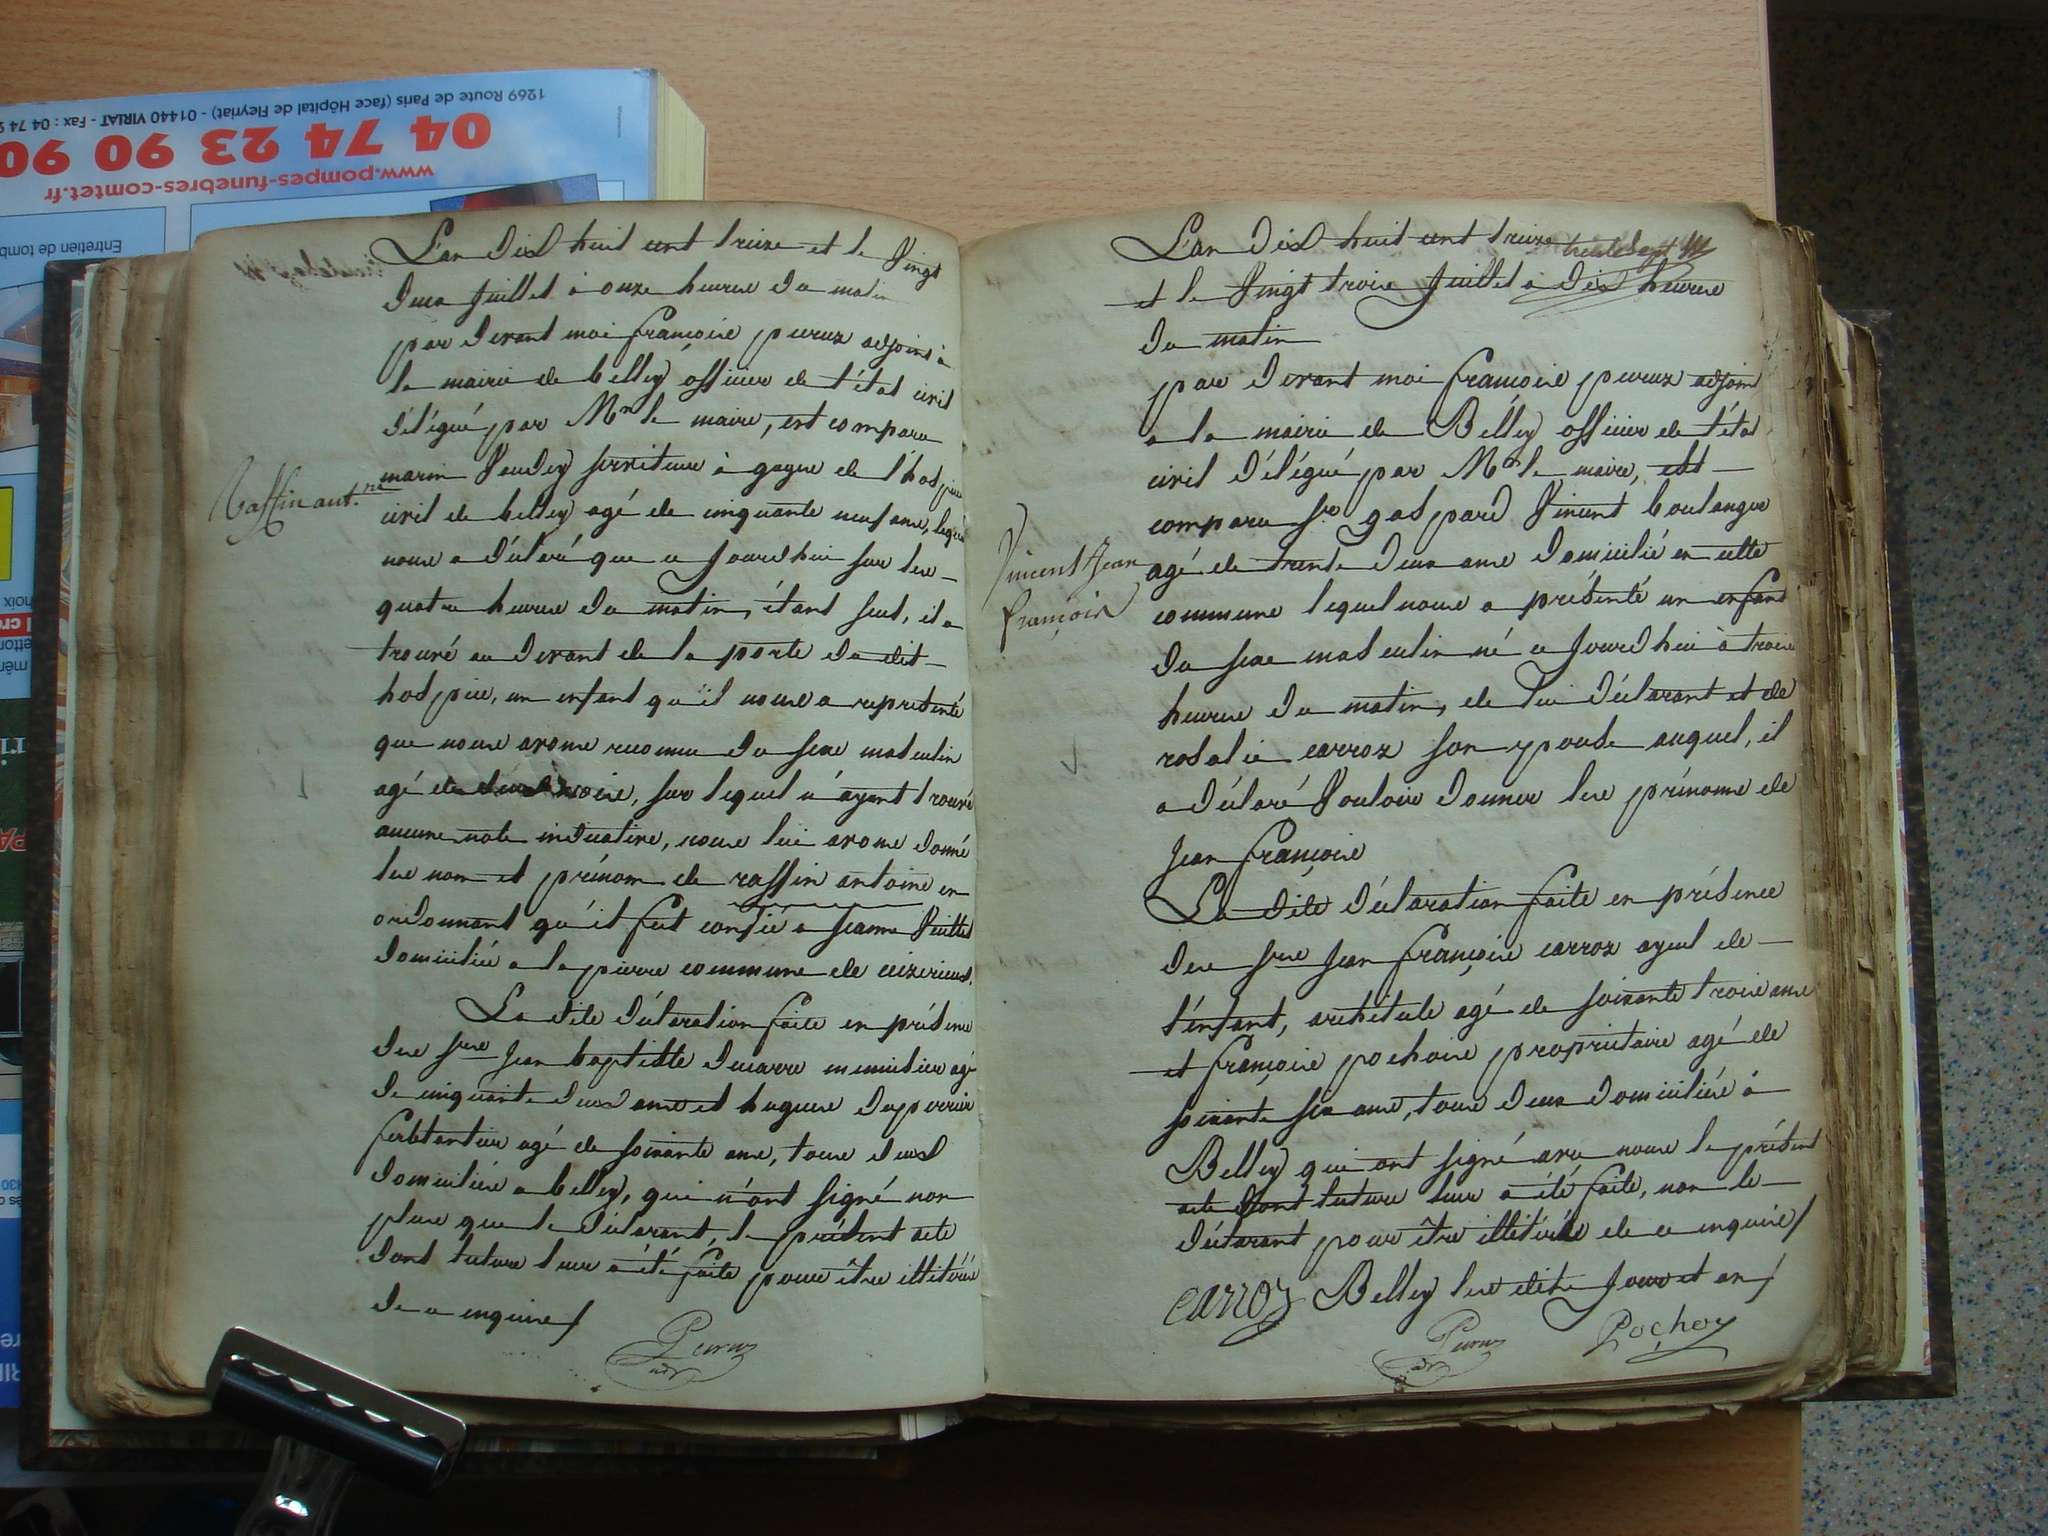 1269 Route de Paris (face Hôpital de Fleyriat) - 01440 VIRIAT - Fax : 04 74
04 74 23 90 90
www.pompes-funebres-comtet.fr
Entretien de tomb
L'an dix huit cent treize et le vingt
deux juillet à onze heures du matin
par devant moi françois peruz adjoint à
la mairie de belley officier de l'état civil
délégué par Mr le maire, est comparu
marin serviteur à gage de l'hospice
civil de belley agé de cinquante neuf ans, lequel
nous a déclaré que ce jourdhui sur les
quatre heures du matin, étant seul, il a
trouvé au devant de la porte du dit
hospice, un enfant qu'il nous a représenté
que nous avons reconnu du sexe masculin
agé de mois, sur lequel n'ayant trouvé
aucune note indicative, nous lui avons donné
les nom et prénom de raffin antoine en
ordonnant qu'il fut confié a jeanne
domiciliée a la pierre commune de ceizerieux.
La dite déclaration faite en présence
des srs jean baptiste ducarre menuisier agé
de cinquante deux ans et hugues duperrier
agé de soixante ans, tous deux
domiciliés a belley, qui n'ont signé non
plus que le déclarant, le présent acte
dont lecture leur a été faite pour être illitérés
de ce enquis /
Peruz
adj
Raffin ant.ne
trente sept
L'an dix huit cent treize
et le vingt trois juillet a dix heures
du matin
par devant moi françois peruz adjoint
a la mairie de Belley officier de l'état
civil délégué par Mr le maire, est
comparu sr gaspard vincent boulanger
agé de trente deux ans domicilié en cette
commune lequel nous a présenté un enfant
du sexe masculin né ce jourdhui à trois
heures du matin, de lui déclarant et de
rosalie carroz son epouse auquel, il
a déclaré vouloir donner les prénoms de
jean françois
La dite déclaration faite en présence
des srs jean françois carroz ayeul de
l'enfant, architecte agé de soixante trois ans
et françois pochoix propriétaire agé de
soixante six ans, tous deux domiciliés à
Belley qui ont signé avec nous le présent
acte dont lecture leur a été faite, non le
déclarant pour être illitéré de ce enquis /
carroz Belley les dits jour et an /
Peruz
adj
Pochoy
Vincent Jean
françois